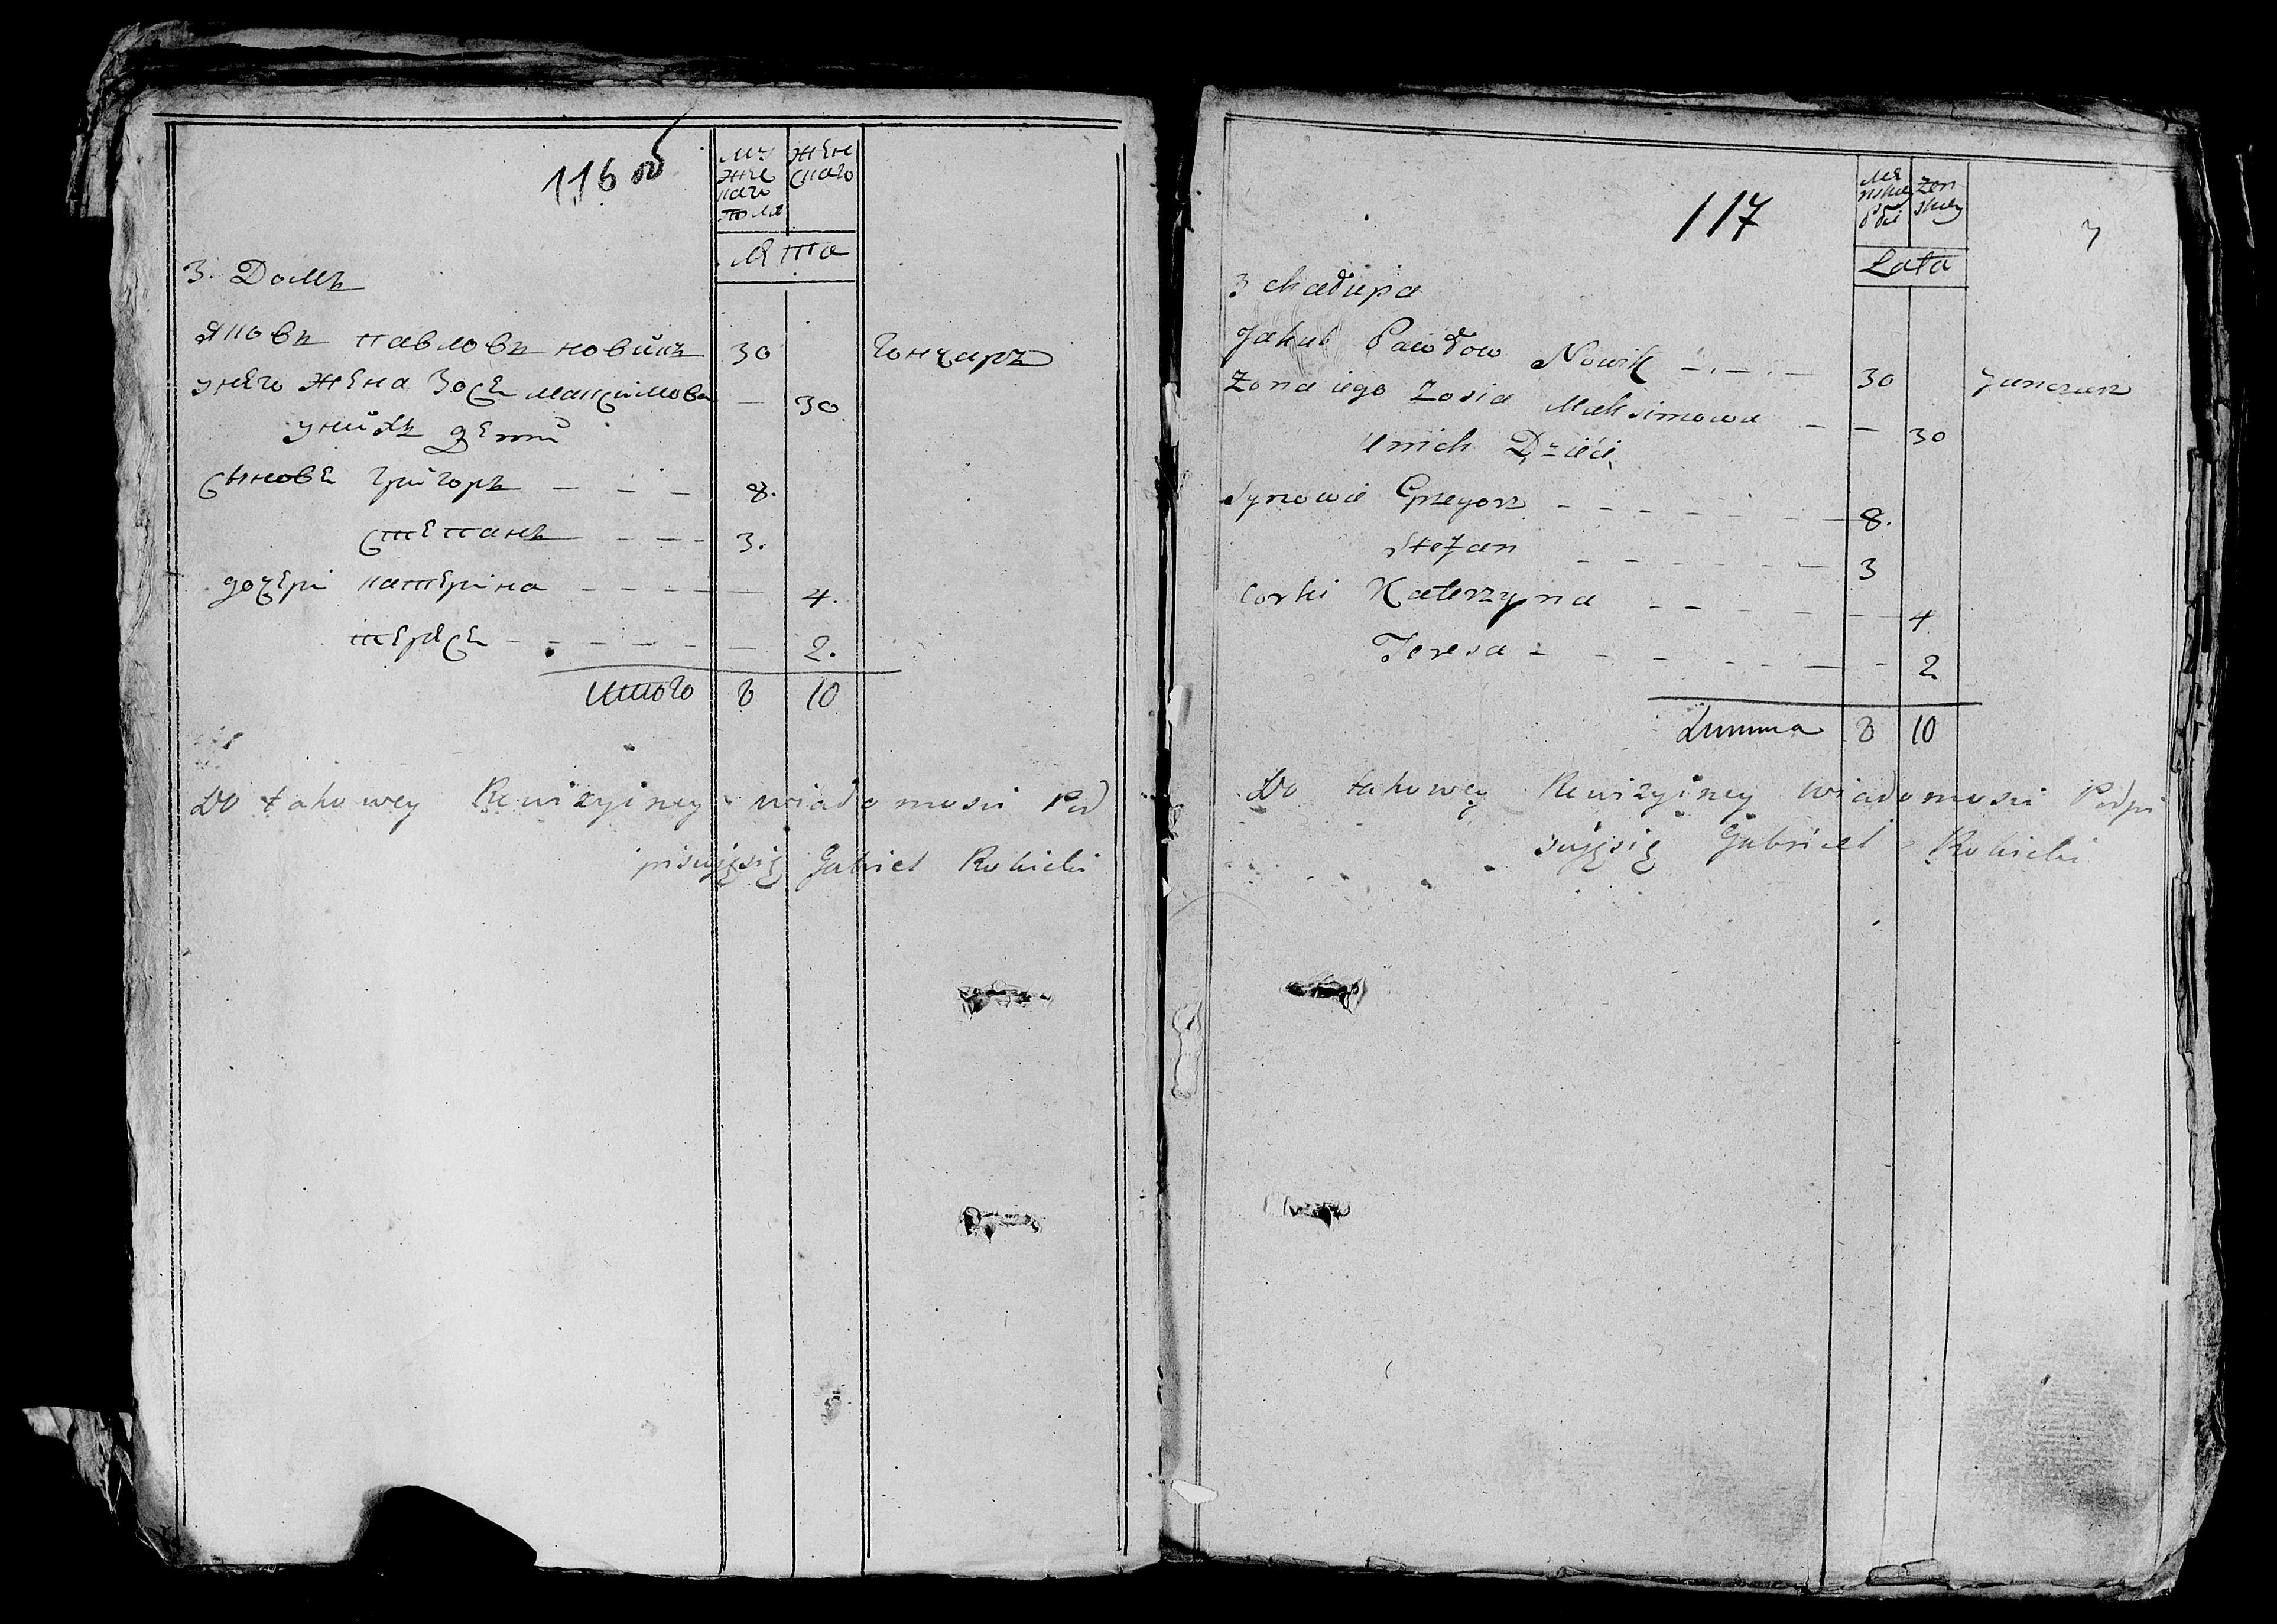 116 об
му
жес
каго
полу
жен
скаго
лѣта
3. Домъ
яковъ павловъ новикъ 30 гончаръ
унѣго жена Зося максимова — 30
унихъ дети
сынове григоръ — — — 8.
степанъ — — — 3.
дочери катерина — — — — — 4.
тереся — — — — — — 2.
итого 8 10
Do takowey Rewizyiney wiadomosci Pod
pisuję się Gabriel Rokicki
117
Mę
skiey
płci
Zen
skiey
Lata
3 chałupa
Jakub Pawłow Nowik — — — 30 Junczar
Zona iego Zosia Maksimowa — — 30
Unich Dzieci
Synowie Grzegorz — — — — — — — 8.
Stefan — — — — — — 3
Corki Katerzyna — — — — — — 4
Teresa — — — — — — — 2
Summa 8 10
Do takowey Rewizyiney wiadomosci Podpi
suję się Gabriel Rokicki